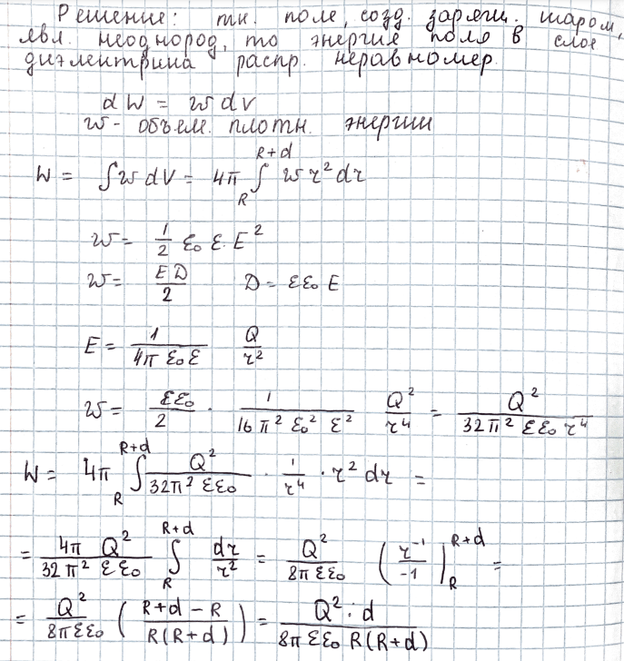 Решение: тк. поле, созд. заряж. шаром,
явл. неоднород, то энергия поля в слое
диэлектрика распр. неравномер.
dW = w dv
w - объем. плотн. энергии
W = ∫w dV = 4π ∫_R^{R+d} w r² dr
w = 1/2 ε₀ ε E²
w = ED/2 D = εε₀ E
E = 1/(4π ε₀ε) Q/r²
w = εε₀/2 · 1/(16 π² ε₀² ε²) Q²/r⁴ = Q²/(32π² εε₀ r⁴)
W = 4π ∫_R^{R+d} Q²/(32π² εε₀) · 1/r⁴ · r² dr =
= 4π Q²/(32π² εε₀) ∫_R^{R+d} dr/r² = Q²/(8π εε₀) (r⁻¹/-1)|_R^{R+d} =
= Q²/(8π εε₀) ((R+d-R)/(R(R+d))) = Q² · d/(8π εε₀ R(R+d))